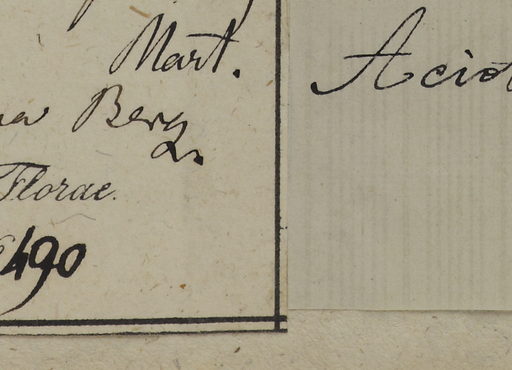 Mart.
Berg
Florae.
490
Acid